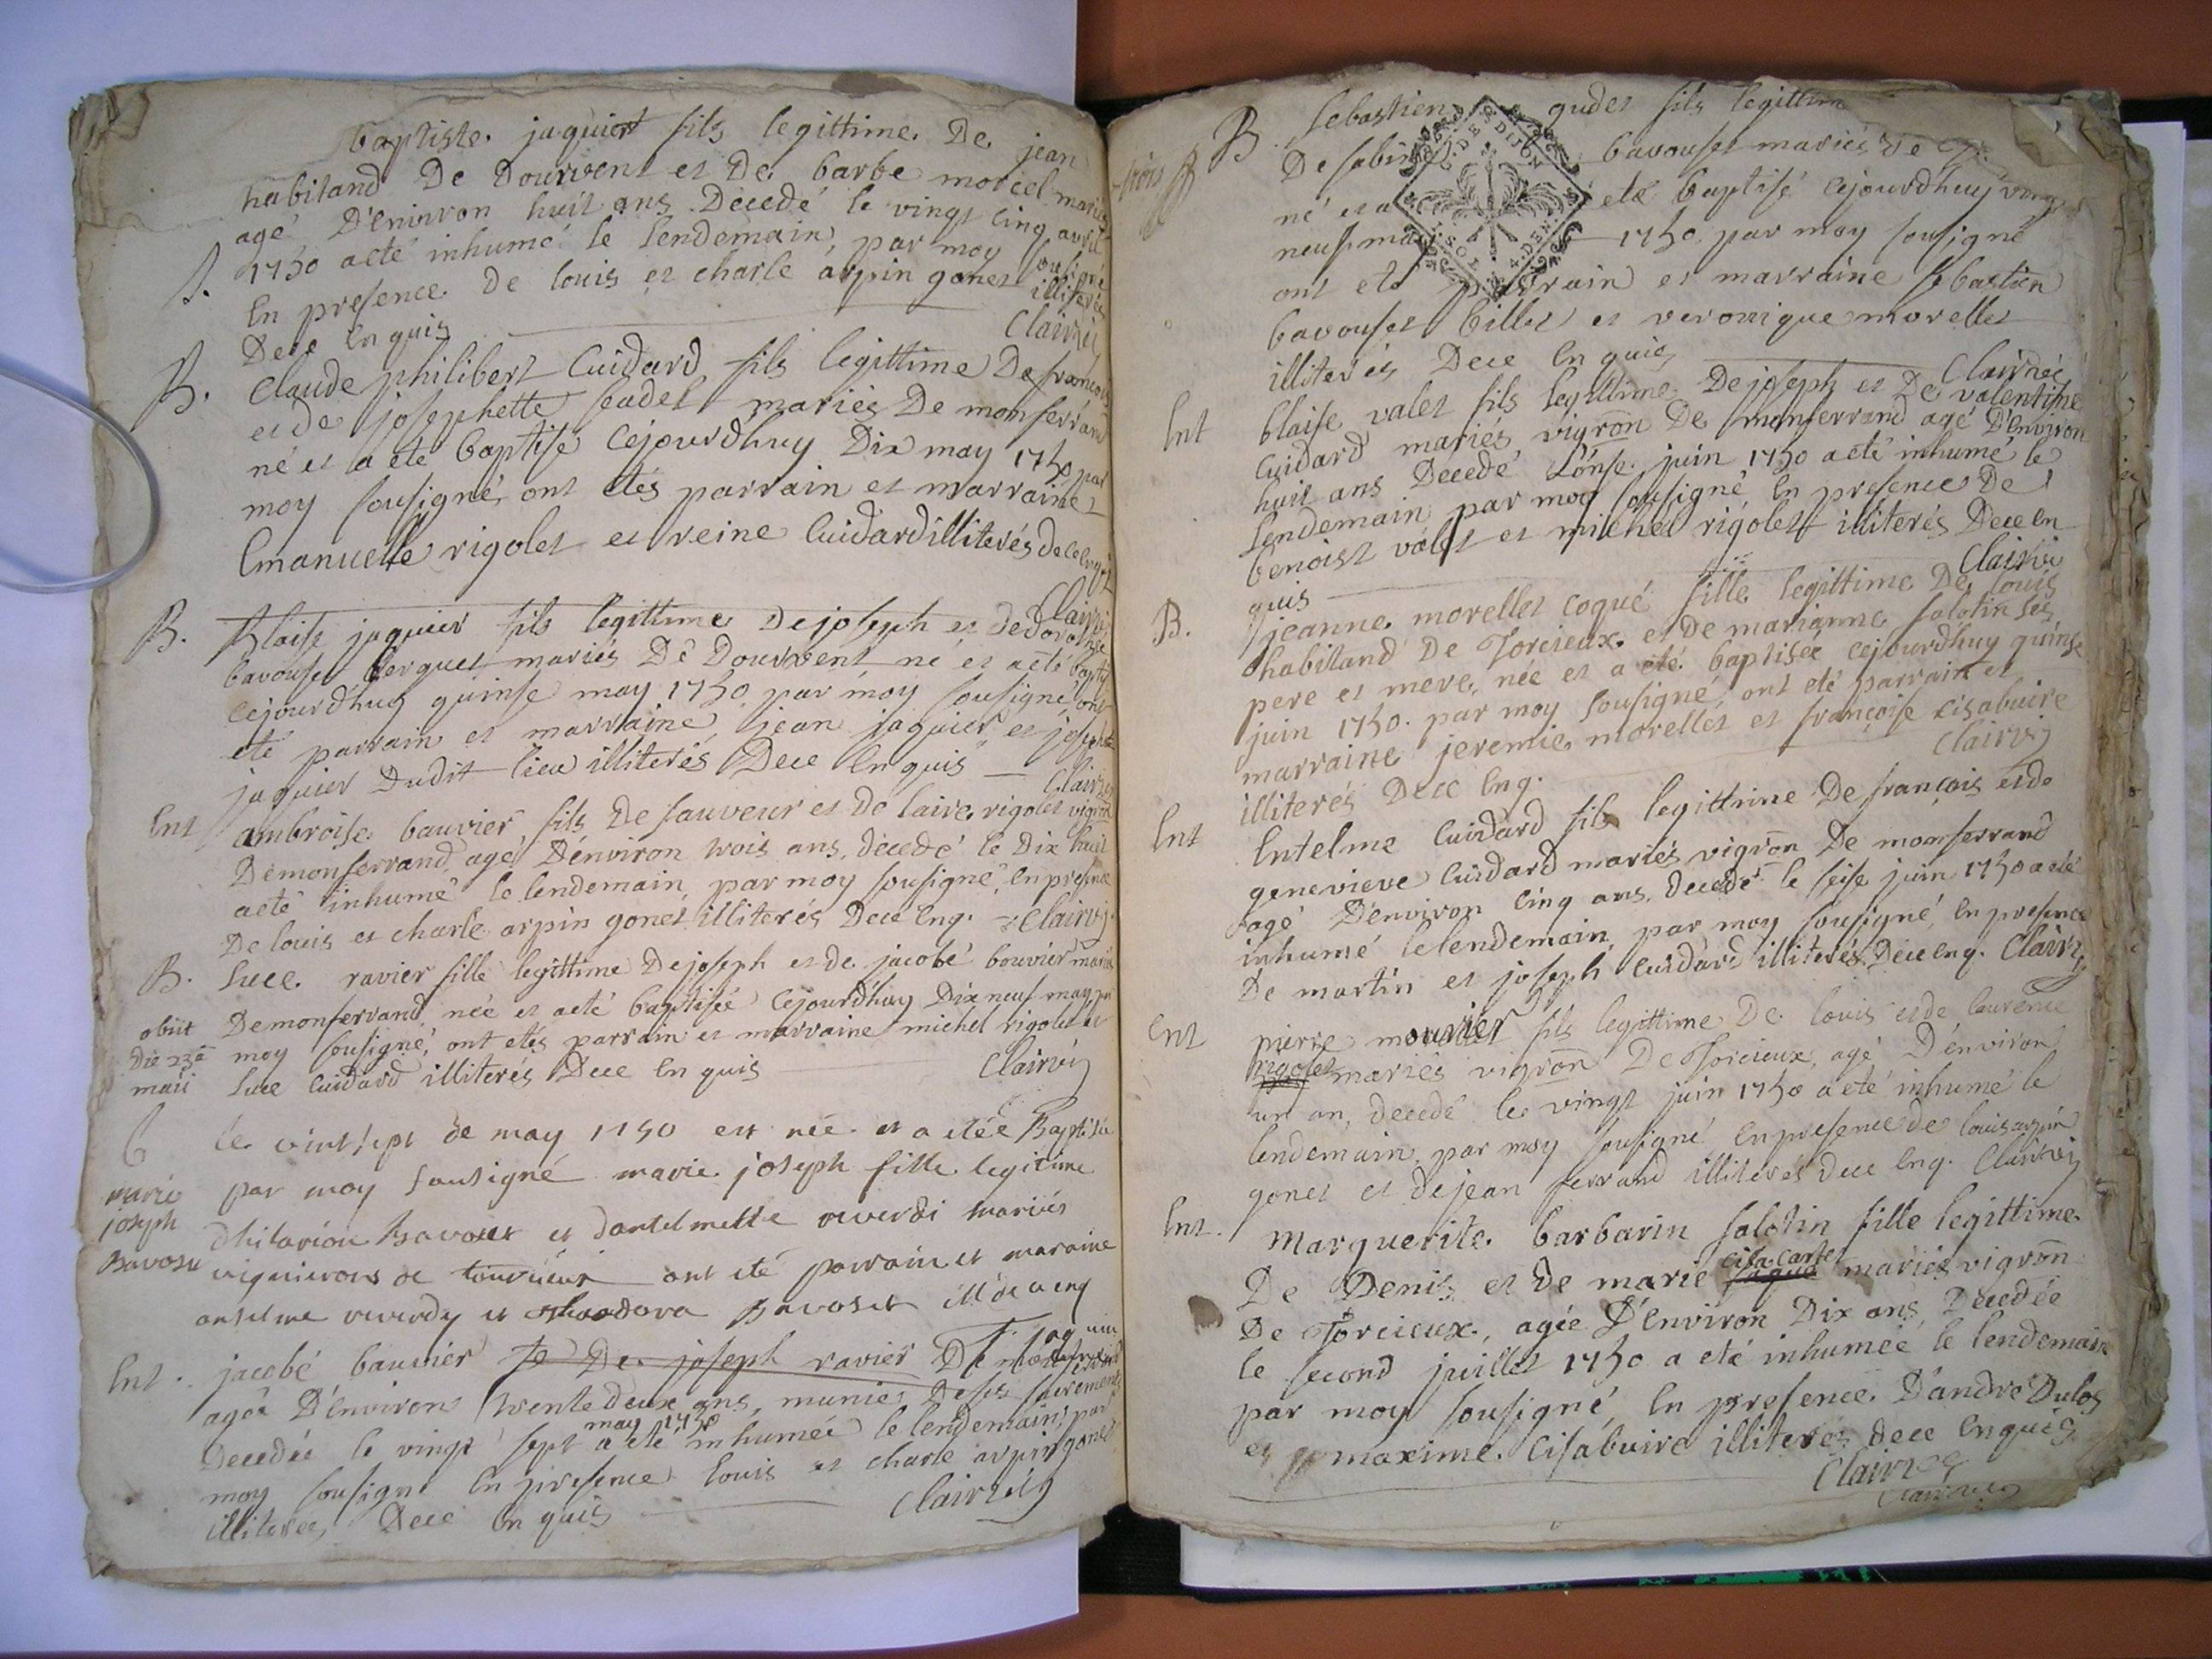 baptiste jaquier fils legittime De jean
habitand De Dourvent et De barbe morcel mariés
agé D'eninron huit ans Decedé le vingt cinq avril
J. 1750 a eté inhumé le lendemain, par moy sousigné
En presence De louis et charle arpin gonet illiterés
Dece Enquis
Clairvi
B. Claude philibert Cuidard fils legittime De francois
et de josephette mariés De monferrand
né et a eté baptisé Cejourdhuy Dix may 1750 par
moy sousigné, ont etés parrain et marraine
Emanuelle rigolet et reine Cuidard illiterés dece enquis
Clairvi
B. Blaise jaquier fils legittime De joseph et de
bavouset berquet mariés De Dourvent né et a eté baptisé
Cejourdhuy quinse may 1750 par moy sousigné, ont
eté parrain et marraine, jean jaquier et josephte
jaquier Dudit lieu illiterés Dece Enquis
Clairvi
Ent ambroise bauvier fils De sauveur et De laire rigolet vigron
De monferrand, agé D'environ trois ans, decedé le Dix huit
a eté inhumé le lendemain, par moy sousigné, en presence
De louis et charle arpin gonet illiterés Dece Enq. Clairvi
B. Luce ravier fille legittime De joseph et de jacobé bouvier mariés
De monferrand née et a eté baptisée Cejourdhuy Dix neuf may par
obiit
die 23ª
maii
moy sousigné, ont etés parrain et marraine michel rigolet et
luce Cuidard illiterés Dece Enquis
Clairvi
B le vint sept de may 1750 est née et a etée Baptisée
marie
joseph
Bavoset
par moy sousigné marie joseph fille legitime
dhilarion Bavoset et dantelmette reverdi mariés
vignierons de torcieux ont eté parrain et maraine
antelme reverdy et theodora Bavoset ill de a enq
Ent. jacobé bauvier fe De joseph ravier De monferrand
agée D'environ trente deux ans, munie Deses sacrements
Decedée le vingt sept may 1750 a eté inhumée le lendemain, par
moy sousigné En presence louis et charle arpin gonet
illiterés Dece Enquis
Clairvi
B. Sebastien gudet fils legittime
De sabin bavouset mariés De
né et a eté baptisé Cejourdhuy vingt
neuf may 1750 par moy sousigné
ont eté parrain et marraine sebastien
bavouset billet et veronique morellet
illiterés Dece Enquis
Clairvi
Ent blaise valet fils legittime De joseph et De valentine
Cuidard mariés vigron De monferrand agé D'environ
huit ans Decedé L'onse juin 1750 a eté inhumé le
lendemain par moy sousigné, En presence De
benoist valet et michel rigolet illiterés Dece En
quis
Clairvi
B. jeanne morellet coqué fille legittime De louis
habitand De Torcieux et De marianne salotin ses
pere et mere, née et a eté baptisée Cejourdhuy quinse
juin 1750. par moy sousigné ont eté parrain et
marraine jeremie morellet et françoise Cisabuire
illiterés Dece Enq.
Clairvi
Ent Entelme Cuidard fils legittime De françois et de
genevieve Cuidard mariés vigron De monferrand
agé D'environ Cinq ans, decedé le seise juin 1750 a eté
inhumé le lendemain, par moy sousigné, En presence
De martin et joseph Cuidard illiterés Dece Enq. Clairvi
Ent pierre mouvier fils legittime De louis et de laurence
rigolet mariés vigron De Torcieux, agé D'environ
un an, decedé le vingt juin 1750 a eté inhumé le
lendemain, par moy sousigné En presence de louis arpin
gonet et de jean ferrand illiterés Dece Enq. Clairvi
Ent. Marguerite barbarin salotin fille legittime
De Denis et De marie cisa carlet mariés vigron
De Torcieux, agée D'environ Dix ans, Decedée
le second juillet 1750 a eté inhumée le lendemain
par moy sousigné, En presence D'andré Dulos
et maxime Cisabuire illiterés Dece Enquis
Clairvi